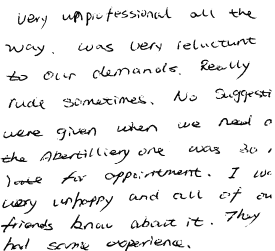 very unprofessional all the
way. was very reluctunt
to our demands. Really
rude sometimes. No Suggesti
were given when we need
the Abertilliery one was 30
late for appointment. I wa
very unhappy and all of ou
friends know about it. They
had same experience.